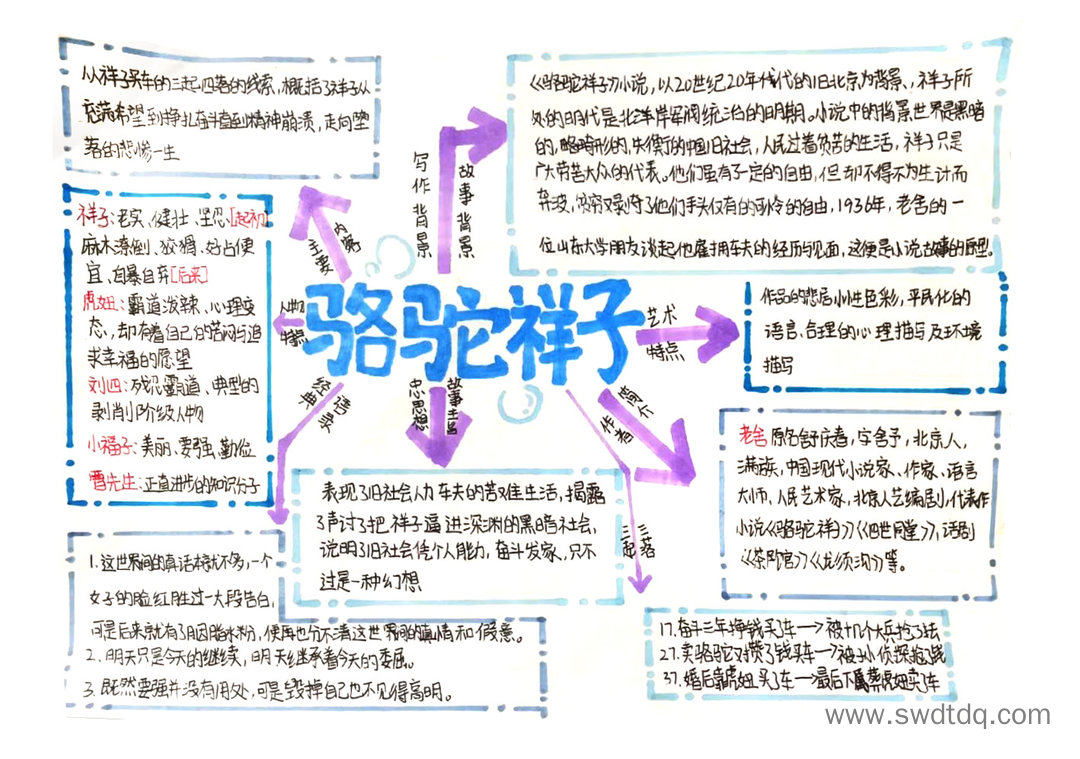 从祥子买车的三起四落的线索,概括了祥子从
充满希望到挣扎奋斗直到精神崩溃,走向堕
落的悲惨一生
主要内容
写作背景
故事背景
《骆驼祥子》小说,以20世纪20年代的旧北京为背景、祥子所
处的时代是北洋军阀统治的时期。小说中的背景世界是黑暗
的,畸形的,失衡的中国旧社会,人民过着贫苦的生活,祥子只是
广大劳苦大众的代表。他们虽有了一定的自由,但却不得不为生计而
奔波,穷又剥夺了他们手头仅有的可怜的自由,1936年,老舍的一
位山东大学朋友谈起他雇用车夫的经历与见面,这便是小说故事的原型。
祥子:老实、健壮、坚忍[起初]
麻木潦倒、狡猾、好占便
宜、自暴自弃[后来]
虎妞:霸道泼辣、心理变
态,却有着自己的苦闷与追
求幸福的愿望
刘四:残忍霸道、典型的
剥削阶级人物
小福子:美丽、要强、勤俭
曹先生:正直进步的知识分子
人物特点
骆驼祥子
艺术特点
作品的悲剧性色彩,平民化的
语言、合理的心理描写及环境
描写
经典语录
中心思想
故事主旨
作者简介
三起三落
老舍原名舒庆春,字舍予,北京人,
满族,中国现代小说家、作家、语言
大师、人民艺术家,北京人艺编剧,代表作
小说《骆驼祥子》《四世同堂》,话剧
《茶馆》《龙须沟》等。
表现了旧社会人力车夫的苦难生活,揭露
了声讨了把祥子逼进深渊的黑暗社会,
说明了旧社会凭个人能力,奋斗发家,只不
过是一种幻想
1.这世界间的真话本就不多,一个
女子的脸红胜过一大段告白,
可是后来就有了胭脂水粉,便再也分不清这世界间的真情和假意。
2.明天只是今天的继续,明天继承着今天的委屈。
3.既然要强并没有用处,可是毁掉自己也不见得高明。
1?.奋斗三年挣钱买车→被十几个大兵抢了去
2?.卖骆驼攒了钱买车→被孙侦探抢钱
3?.婚后靠虎妞买了车→最后为葬虎妞卖车
www.swdtdq.com